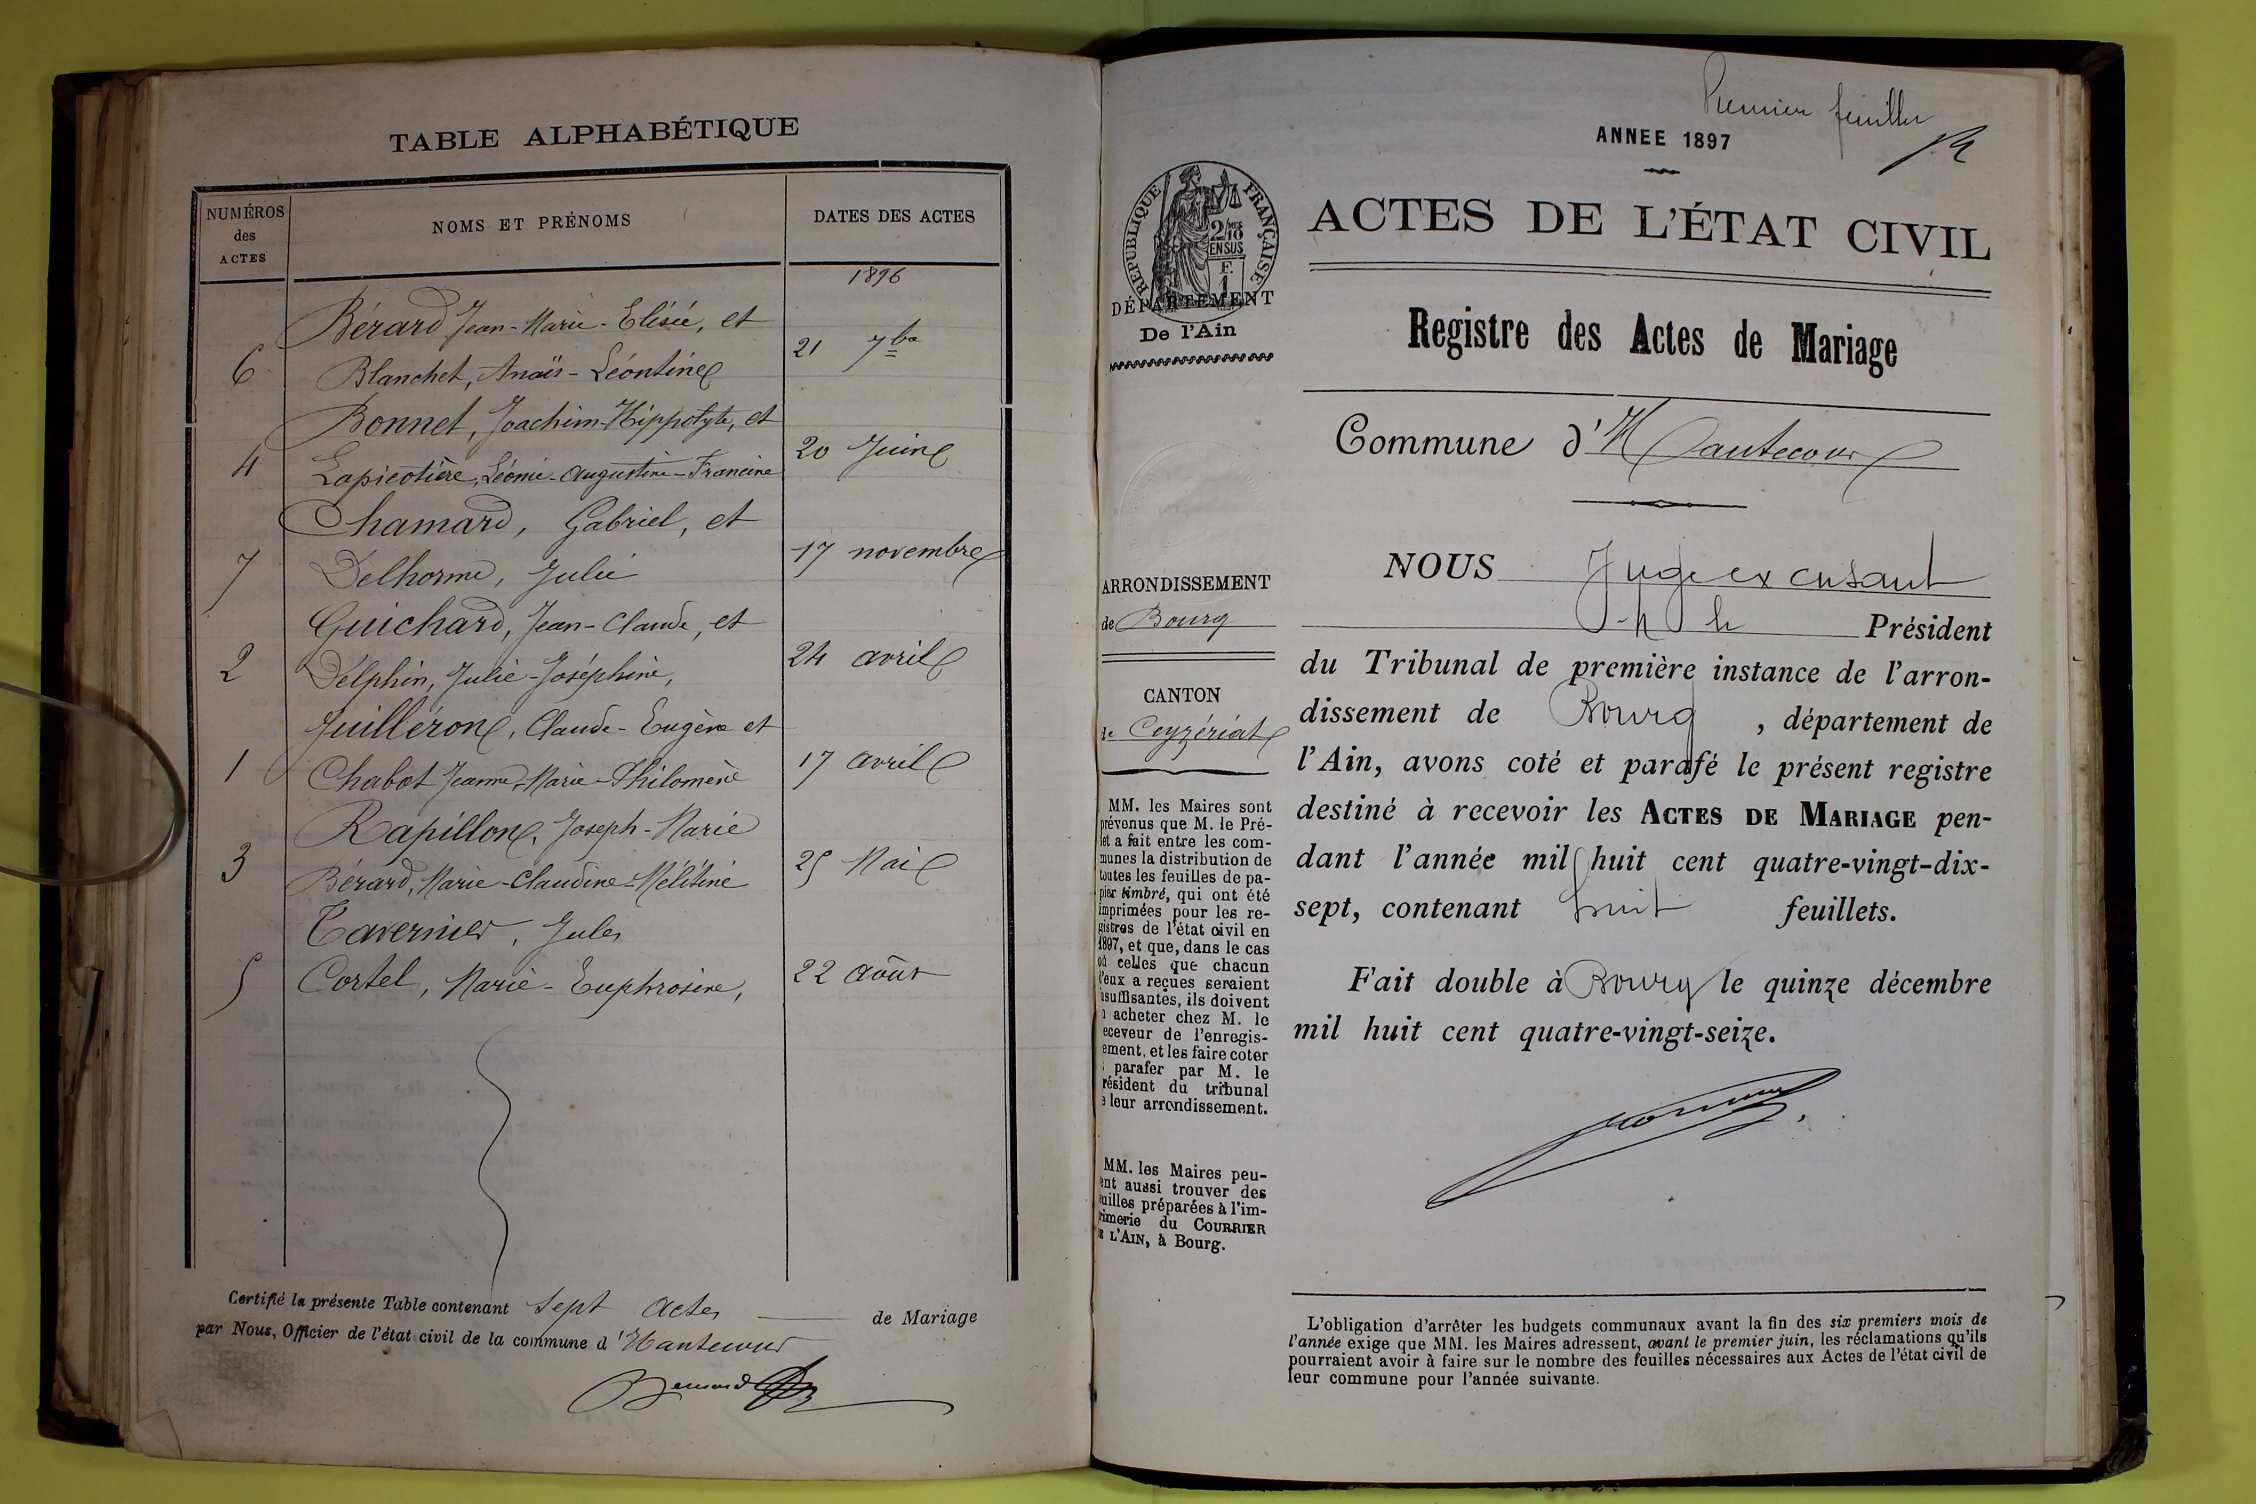 TABLE ALPHABÉTIQUE
NUMÉROS
des
ACTES
NOMS ET PRÉNOMS
DATES DES ACTES
1896
Bérard Jean-Marie-Elisée, et
6 Blanchet, Anaïs-Léontine 21 7bre
Bonnet, Joachim-Hippolyte, et
4 Lapicotière, Léonie-Augustine-Francine 20 Juin
Chamard, Gabriel, et
7 Delhorme, Julie 17 novembre
Guichard, Jean-Claude, et
2 Delphin, Julie-Joséphine, 24 avril
Guilléron, Claude-Eugène et
1 Chabot Jeanne-Marie-Philomène 17 avril
Rapillon, Joseph-Marie
3 Bérard, Marie-Claudine-Mélitine 25 Mai
Tavernier, Jules
5 Cortel, Marie-Euphrosine, 22 août
Certifié la présente Table contenant sept actes de Mariage
par Nous, Officier de l'état civil de la commune d'Hautecour
Bernard
Premier feuillet
ANNEE 1897
RÉPUBLIQUE FRANÇAISE
2/10 MES
EN SUS
F.
1
ACTES DE L'ÉTAT CIVIL
DÉPARTEMENT
De l'Ain
Registre des Actes de Mariage
Commune d'Hautecour
ARRONDISSEMENT
de Bourg
CANTON
de Ceyzériat
MM. les Maires sont
prévenus que M. le Pré-
fet a fait entre les com-
munes la distribution de
toutes les feuilles de pa-
pier timbré, qui ont été
imprimées pour les re-
gistres de l'état civil en
1897, et que, dans le cas
où celles que chacun
d'eux a reçues seraient
insuffisantes, ils doivent
n acheter chez M. le
eceveur de l'enregis-
ement, et les faire coter
parafer par M. le
résident du tribunal
e leur arrondissement.
MM. les Maires peu-
ent aussi trouver des
euilles préparées à l'im-
rimerie du COURRIER
DE L'AIN, à Bourg.
NOUS Juge
Président
du Tribunal de première instance de l'arron-
dissement de Bourg, département de
l'Ain, avons coté et parafé le présent registre
destiné à recevoir les ACTES DE MARIAGE pen-
dant l'année mil huit cent quatre-vingt-dix-
sept, contenant huit feuillets.
Fait double à Bourg le quinze décembre
mil huit cent quatre-vingt-seize.
L'obligation d'arrêter les budgets communaux avant la fin des six premiers mois de
l'année exige que MM. les Maires adressent, avant le premier juin, les réclamations qu'ils
pourraient avoir à faire sur le nombre des feuilles nécessaires aux Actes de l'état civil de
leur commune pour l'année suivante.